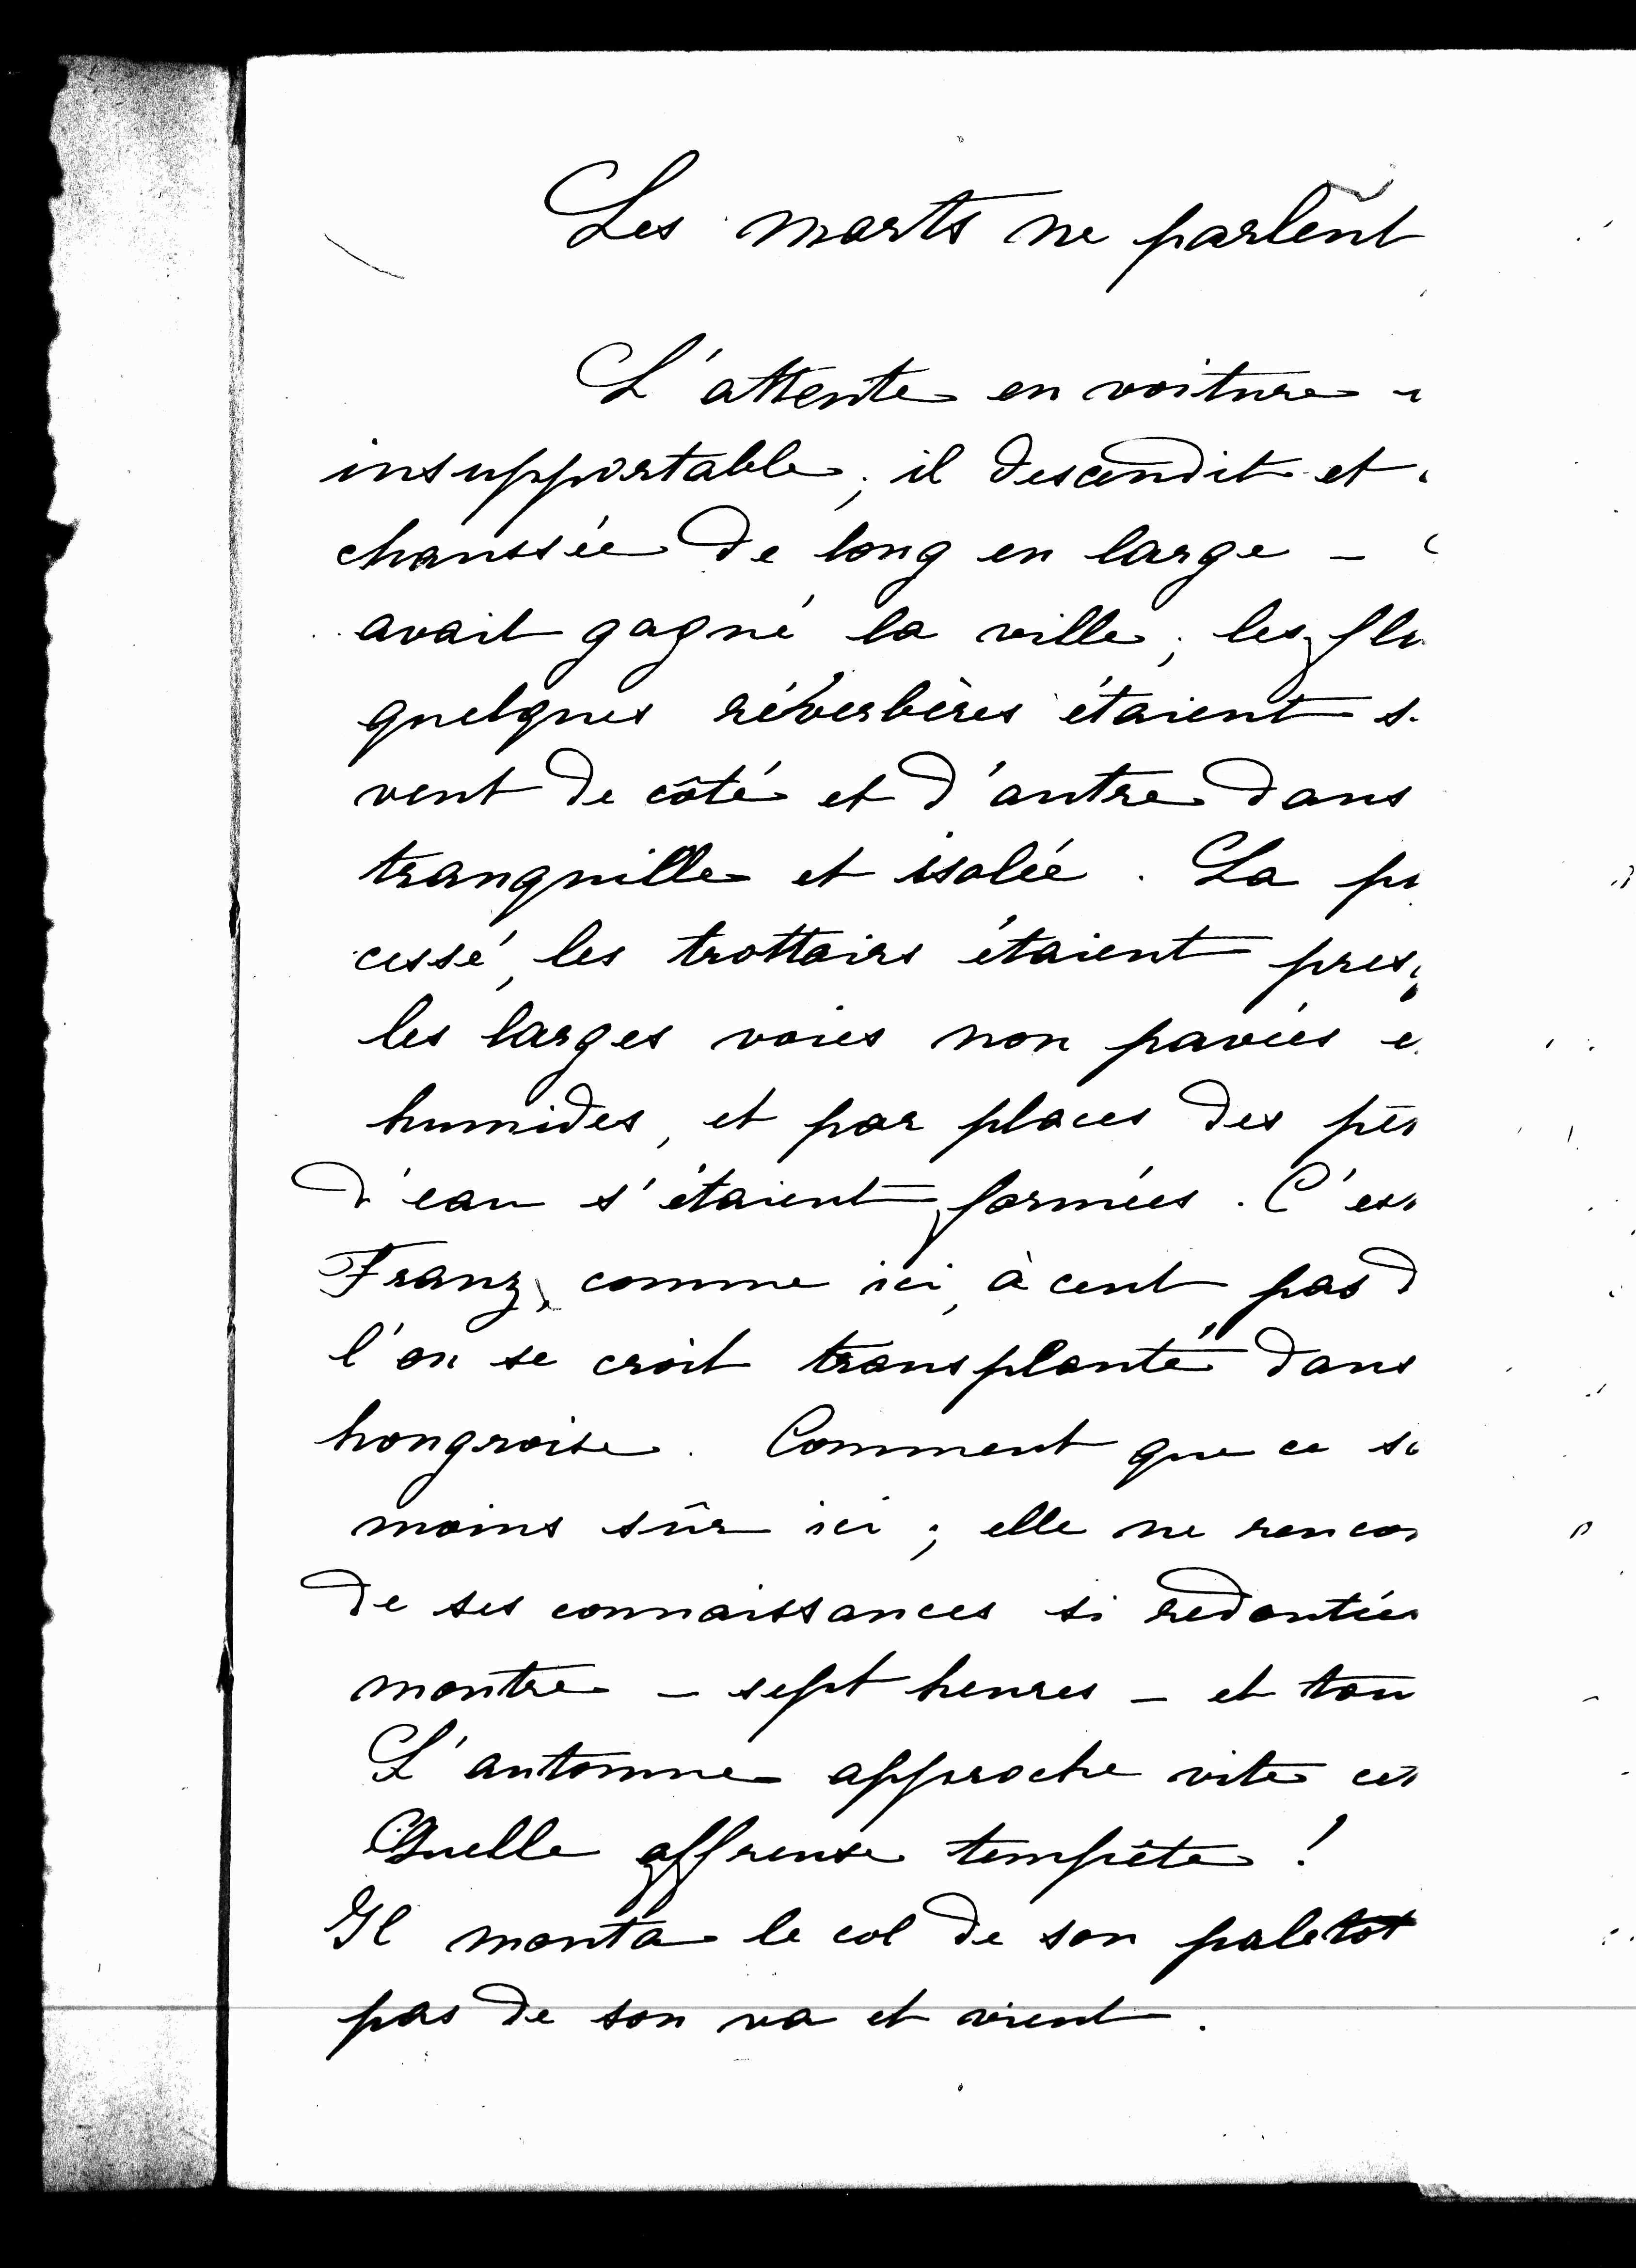 Les morts ne parlent
L'attente en voiture
insupportable; il descendit et
chaussée de long en large -
avait gagné la ville; les
quelques réverbères étaient
vent de côté et d'autre dans
tranquille et isolée. La
cessé, les trottoirs étaient
les larges voies non pavées
humides, et par places des
d'eau s'étaient formées.
Franz, comme ici, à cent pas
l'on se croit transplanté dans
hongroise. Comment que ce
moins sûr ici; elle ne
de ses connaissances si redoutées
montre - sept heures - et
L'automne approche vite
Quelle affreuse tempête!
Il monta le col de son paletot
pas de son va et vient.